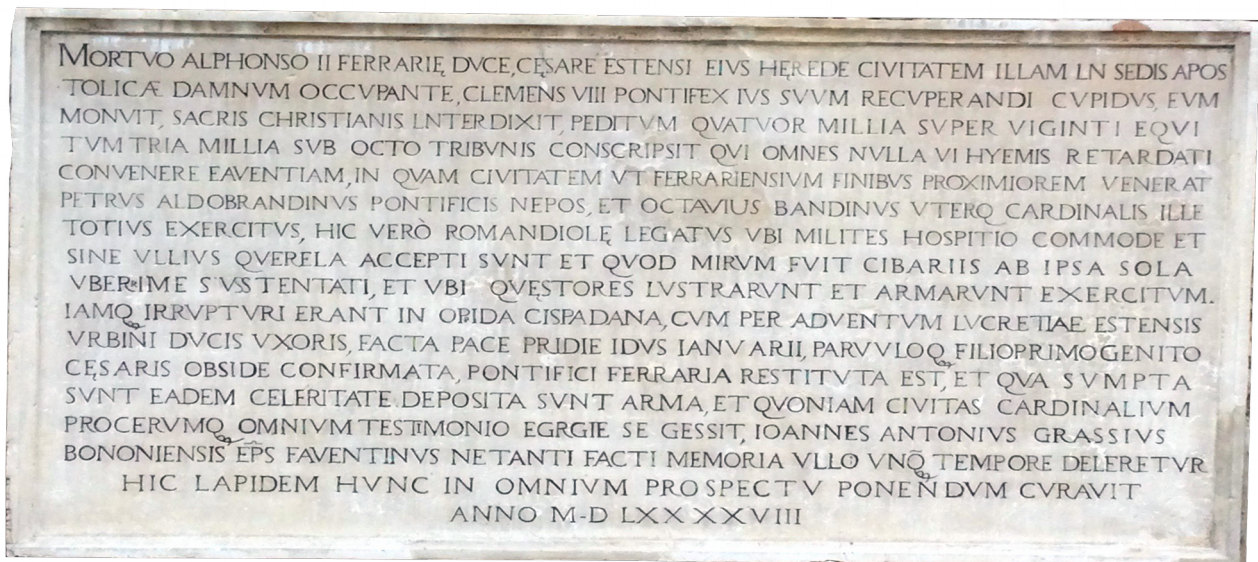 MORTVO ALPHONSO II FERRARIĘ DVCE, CĘSARE ESTENSI EIVS HĘREDE CIVITATEM ILLAM LN SEDIS APOS
TOLICÆ DAMNVM OCCVPANTE, CLEMENS VIII PONTIFEX IVS SVVM RECVPERANDI CVPIDVS, EVM
MONVIT, SACRIS CHRISTIANIS LNTERDIXIT, PEDITVM QVATVOR MILLIA SVPER VIGINTI EQVI
TVM TRIA MILLIA SVB OCTO TRIBVNIS CONSCRIPSIT QVI OMNES NVLLA VI HYEMIS RETARDATI
CONVENERE FAVENTIAM, IN QVAM CIVITATEM VT FERRARIENSIVM FINIBVS PROXIMIOREM VENERAT
PETRVS ALDOBRANDINVS PONTIFICIS NEPOS, ET OCTAVIUS BANDINVS VTERQ CARDINALIS ILLE
TOTIVS EXERCITVS, HIC VERÒ ROMANDIOLĘ LEGATVS VBI MILITES HOSPITIO COMMODE ET
SINE VLLIVS QVERELA ACCEPTI SVNT ET QVOD MIRVM FVIT CIBARIIS AB IPSA SOLA
VBERRIME SVSTENTATI, ET VBI QVĘSTORES LVSTRARVNT ET ARMARVNT EXERCITVM.
IAMQ IRRVPTVRI ERANT IN OPIDA CISPADANA, CVM PER ADVENTVM LVCRETIAE ESTENSIS
VRBINI DVCIS VXORIS, FACTA PACE PRIDIE IDVS IANVARII, PARVVLOQ FILIOPRIMOGENITO
CĘSARIS OBSIDE CONFIRMATA, PONTIFICI FERRARIA RESTITVTA EST, ET QVA SVMPTA
SVNT EADEM CELERITATE DEPOSITA SVNT ARMA, ET QVONIAM CIVITAS CARDINALIVM
PROCERVMQ OMNIVM TESTIMONIO EGRGIE SE GESSIT, IOANNES ANTONIVS GRASSIVS
BONONIENSIS EP̃S FAVENTINVS NETANTI FACTI MEMORIA VLLO VNQ̃ TEMPORE DELERETVR
HIC LAPIDEM HVNC IN OMNIVM PROSPECTV PONENDVM CVRAVIT
ANNO M-D LXXXXVIII